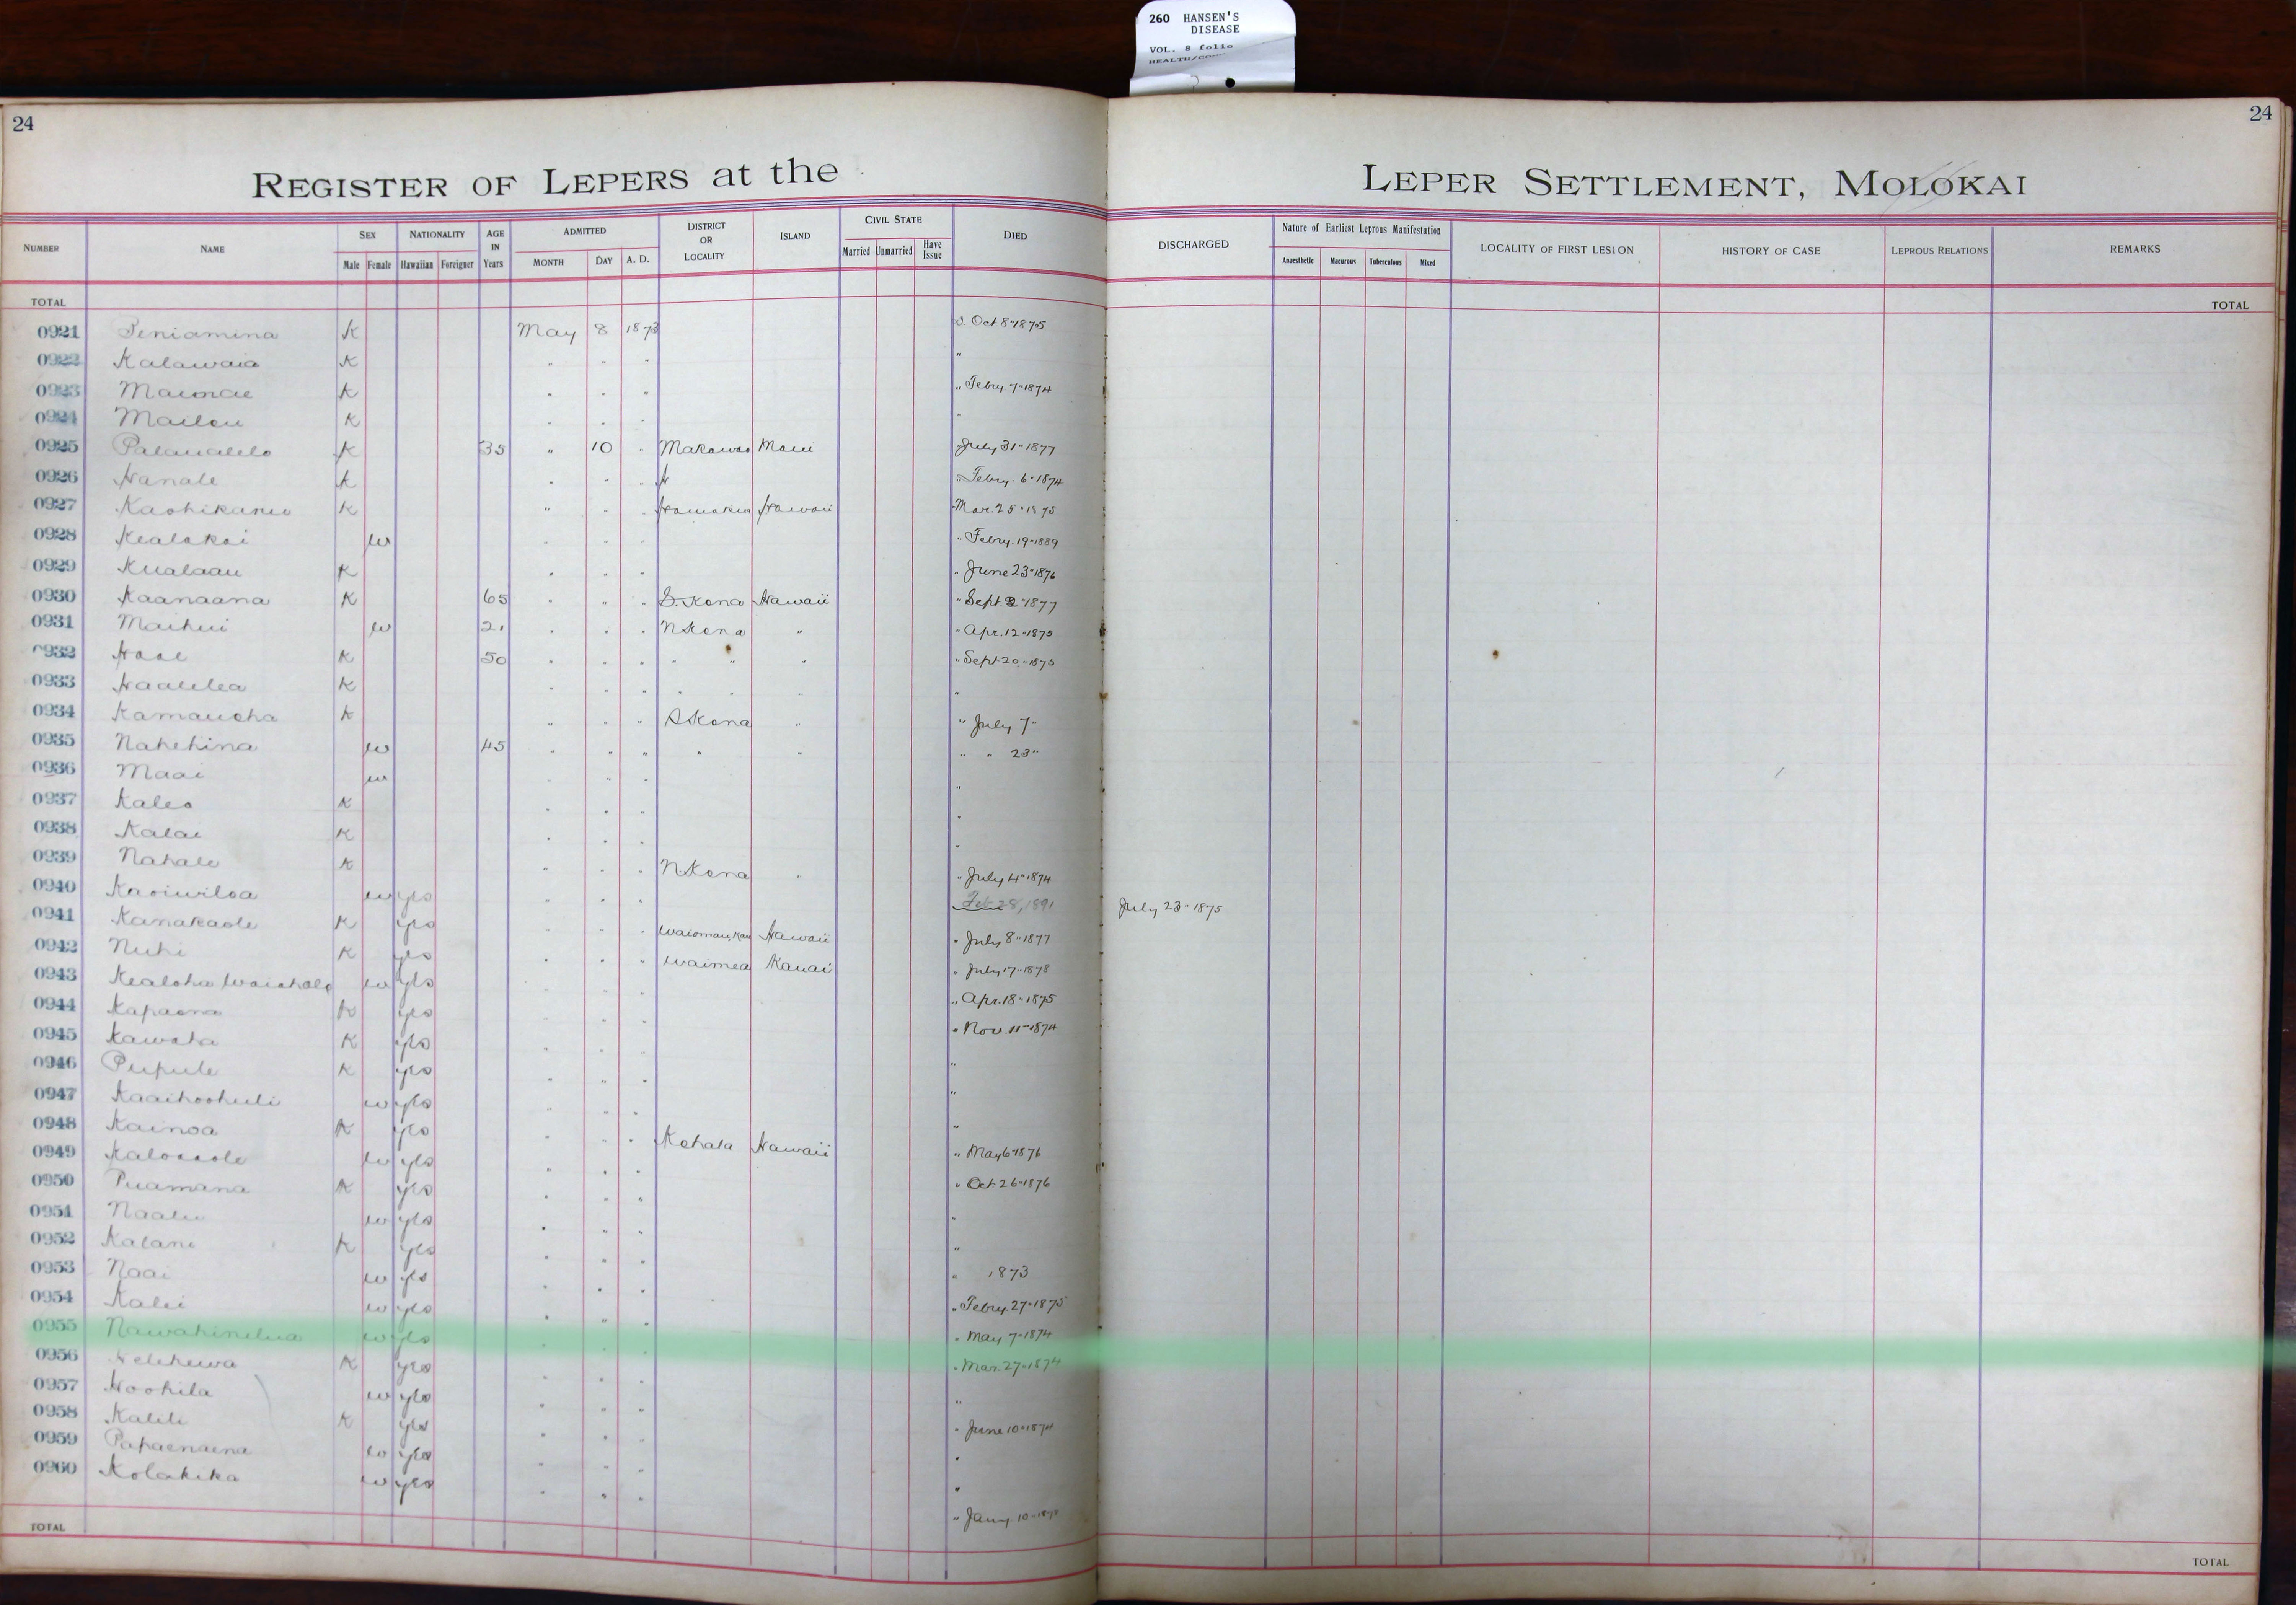 260 HANSEN'S
DISEASE
VOL. 8 folio
24
24
REGISTER OF LEPERS at the
LEPER SETTLEMENT, MOLOKAI
NUMBER NAME SEX Male Female NATIONALITY Hawaiian Foreigner AGE IN Years ADMITTED MONTH DAY A. D. DISTRICT OR LOCALITY ISLAND CIVIL STATE Married Unmarried Have Issue DIED DISCHARGED Nature of Earliest Leprous Manifestation Anaesthetic Macurous Tuberculous Mixed LOCALITY OF FIRST LESION HISTORY OF CASE LEPROUS RELATIONS REMARKS
TOTAL TOTAL
0921 Peniamina K May 8 1873 D. Oct 8" 1875
0922 Kalawaia K " " " "
0923 Maunae K " " " " Febry. 7" 1874
0924 K " " " "
0925 Palaualelo K 35 " 10 " Makawao Maui " July 31" 1877
0926 Hanale K " " " " Febry. 6" 1874
0927 Kaohikanui K " " " Hamakua Hawaii " Mar. 25" 1875
0928 Kealakai w " " " " Febry. 19" 1889
0929 Kualaau K " " " " June 23" 1876
0930 Kaanaana K 65 " " " S. Kona Hawaii " Sept 2" 1877
0931 Maihui w 21 " " " N Kona " " Apr. 12" 1875
0932 K 50 " " " " " " " Sept 20" 1875
0933 Haalilea K " " " " " " "
0934 Kamauoha K " " " S Kona " " July 7"
0935 Nahehina w 45 " " " " " " " 23"
0936 Maai w " " " "
0937 Kaleo K " " " "
0938 Kalai K " " " "
0939 Nahale K " " " N Kona " " July 4" 1874
0940 Kaoiwiloa w yes " " " Feb 28, 1891 July 23" 1875
0941 Kanakaole K yes " " " Hawaii " July 8" 1877
0942 Nuhi K yes " " " Waimea Kauai " July 17" 1878
0943 Kealoha Waiohole w yes " " " " Apr. 18" 1875
0944 Kapaona K yes " " " " Nov. 11" 1874
0945 Kawaha K yes " " " "
0946 Pupule K yes " " " "
0947 Kaaihoohuli w yes " " " "
0948 Kainoa K yes " " " Kohala Hawaii " May 6" 1876
0949 w yes " " " " Oct 26" 1876
0950 Puamana K yes " " " "
0951 Naalu w yes " " " "
0952 Kalani K yes " " " " 1873
0953 Naai w yes " " " " Febry. 27" 1875
0954 Kalei w yes " " " " May 7" 1874
0955 Nawahinelua w yes " " " " Mar. 27" 1874
0956 K yes " " " "
0957 Hoohila w yes " " " " June 10" 1874
0958 Kalili K yes " " " "
0959 Papaenaena w yes " " " "
0960 Kolakika w yes " " " " Jany. 10"
TOTAL TOTAL